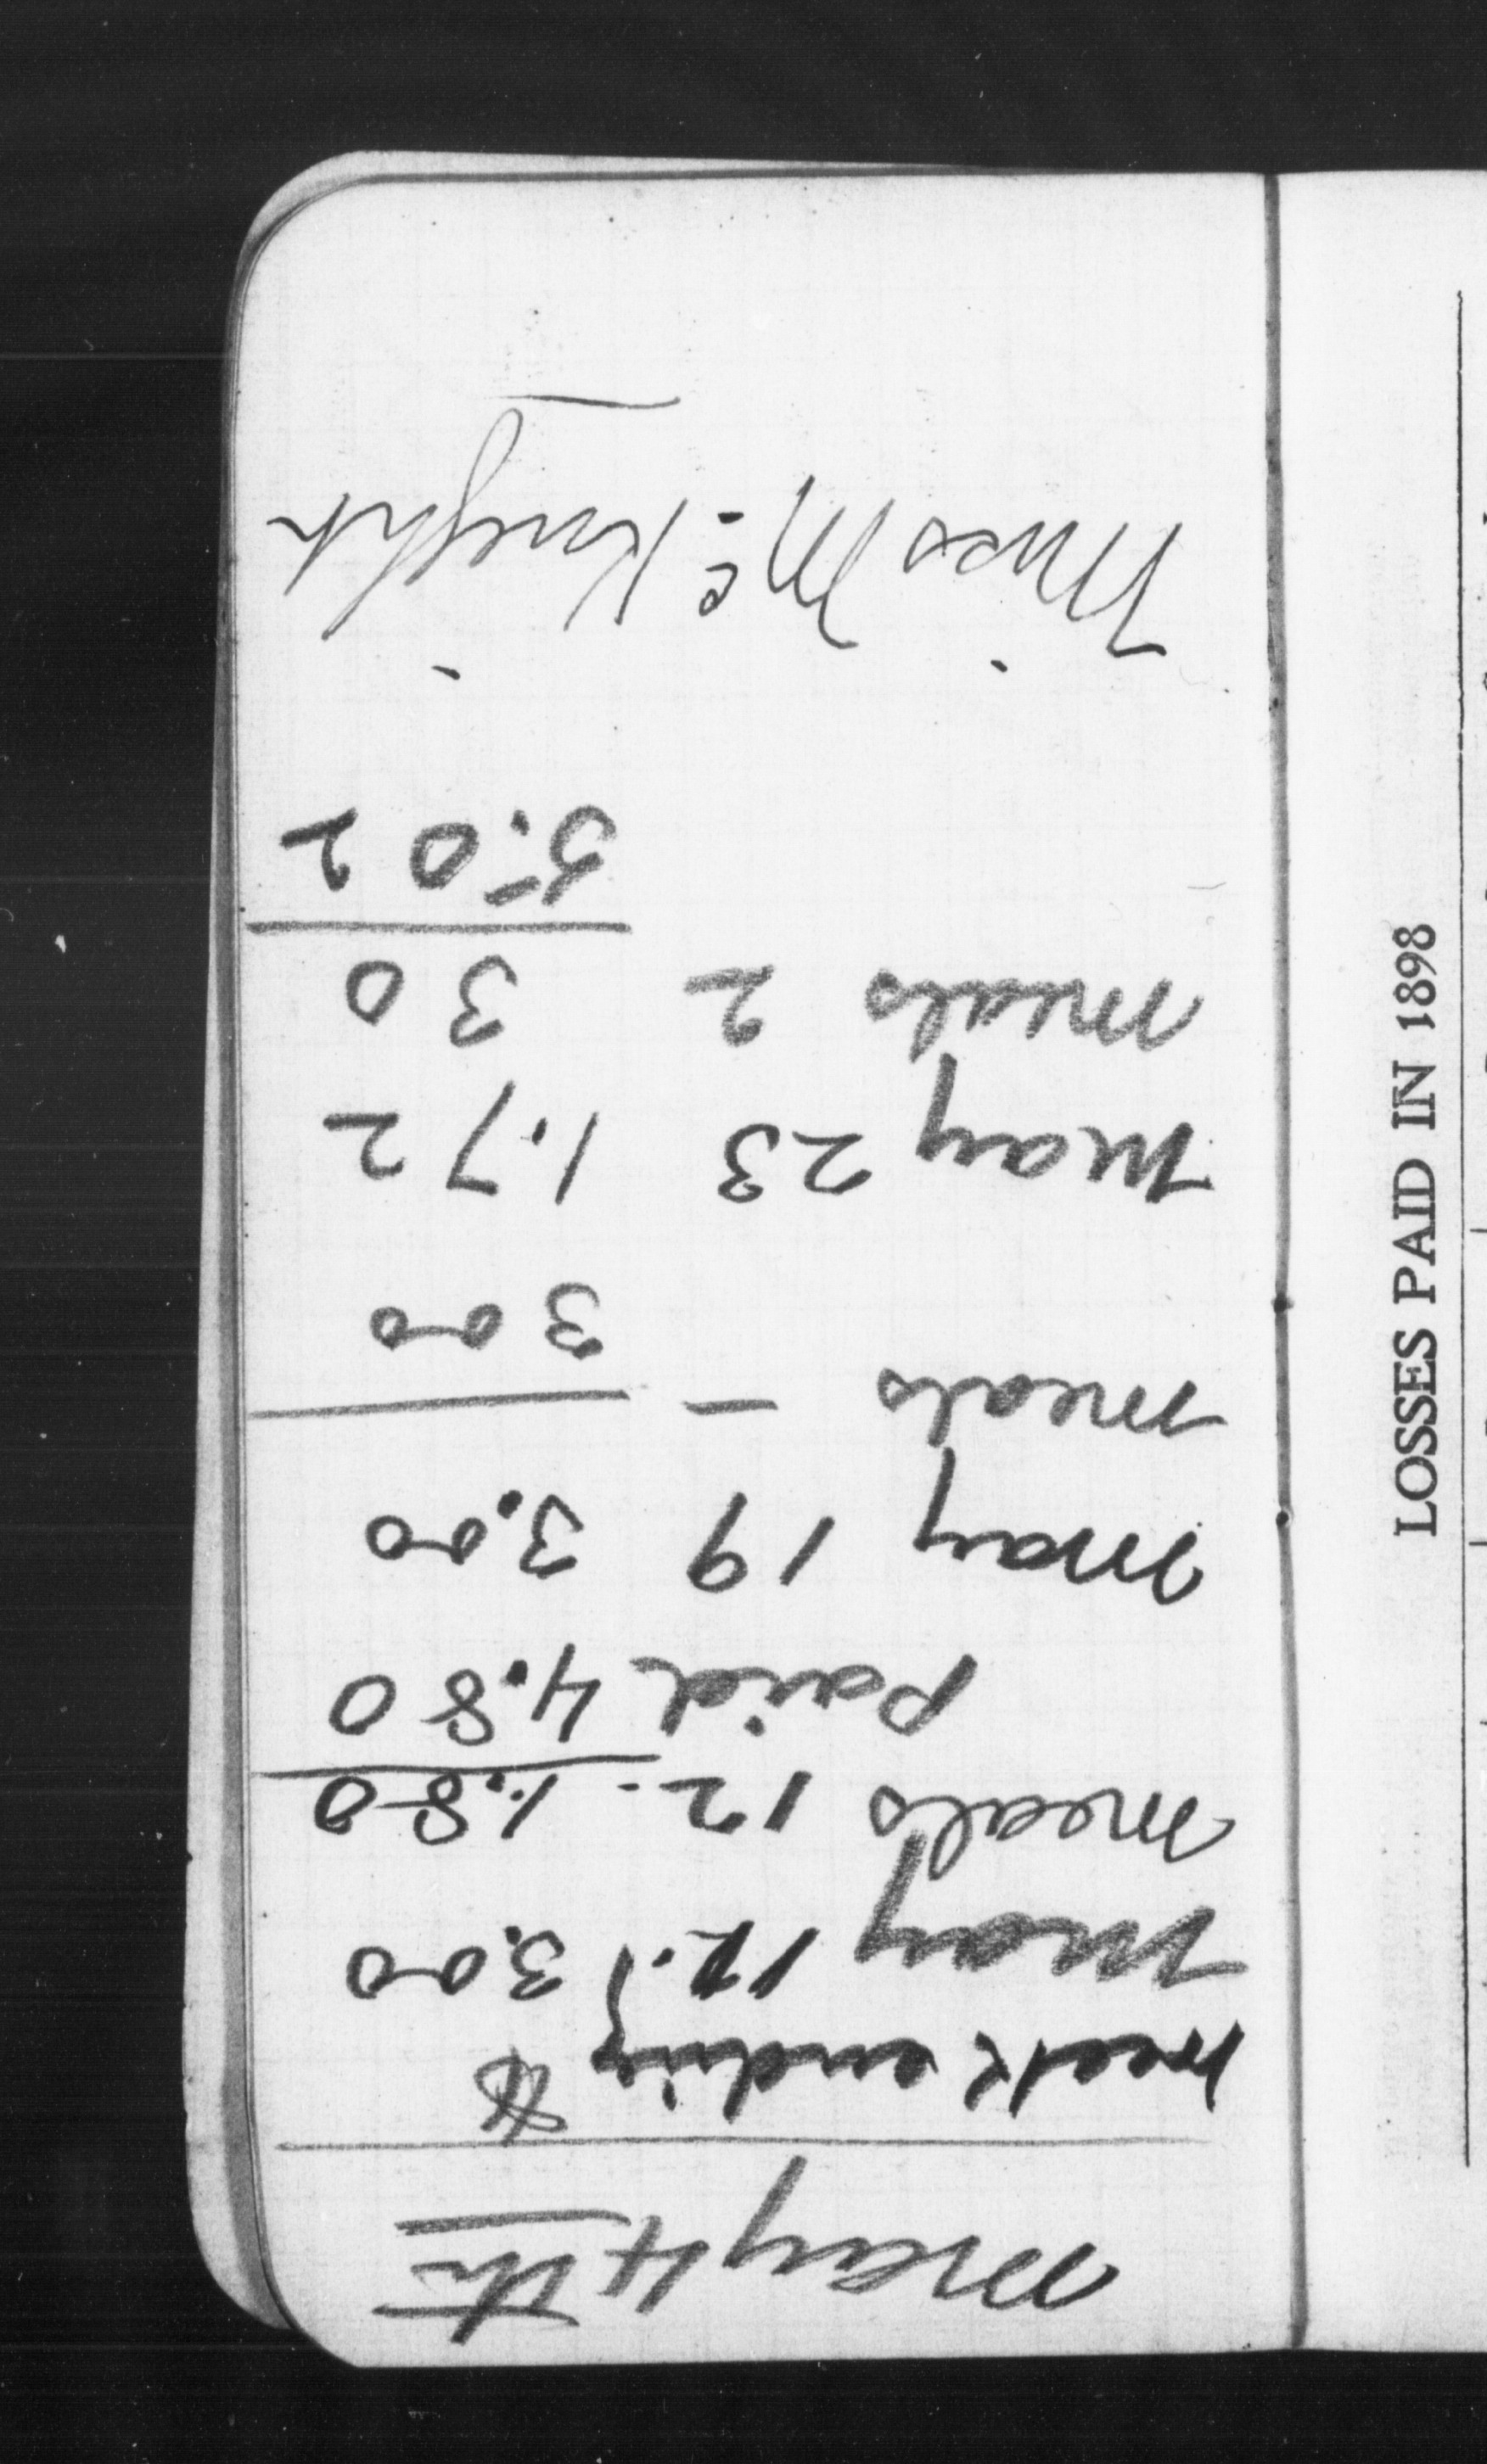 May 4th
week ending
May 12. 3.00
meals 12. 1.80
Paid 4.80
May 19 3.00
meals —
3 00
May 23 1.72
meals 2 30
5.02
Miss McKnight
LOSSES PAID IN 1898